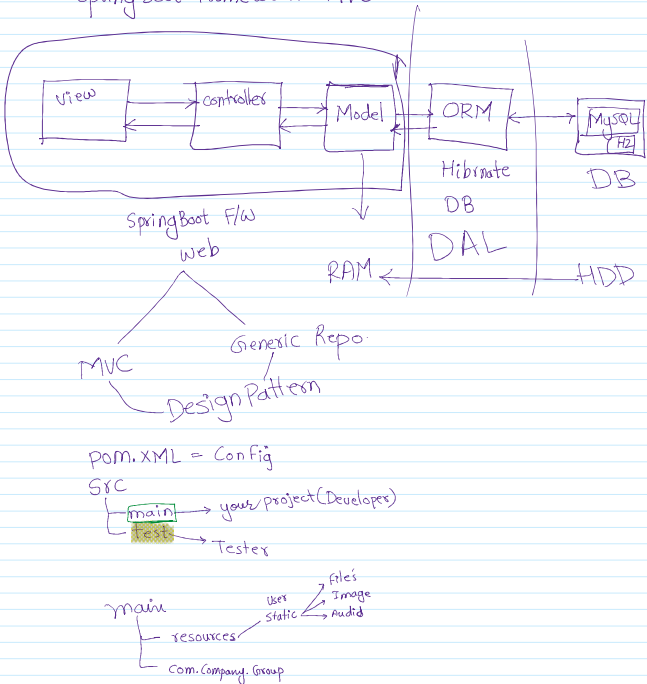 View
controller
Model
ORM
MySQL
H2
Hibrnate
DB
DB
SpringBoot F/W
Web
DAL
RAM
HDD
Generic Repo.
MVC
Design Pattern
pom.XML = Config
Src
main
your project (Developer)
test
Tester
main
resources
User
Static
File's
Image
Audid
Com.Company.Group